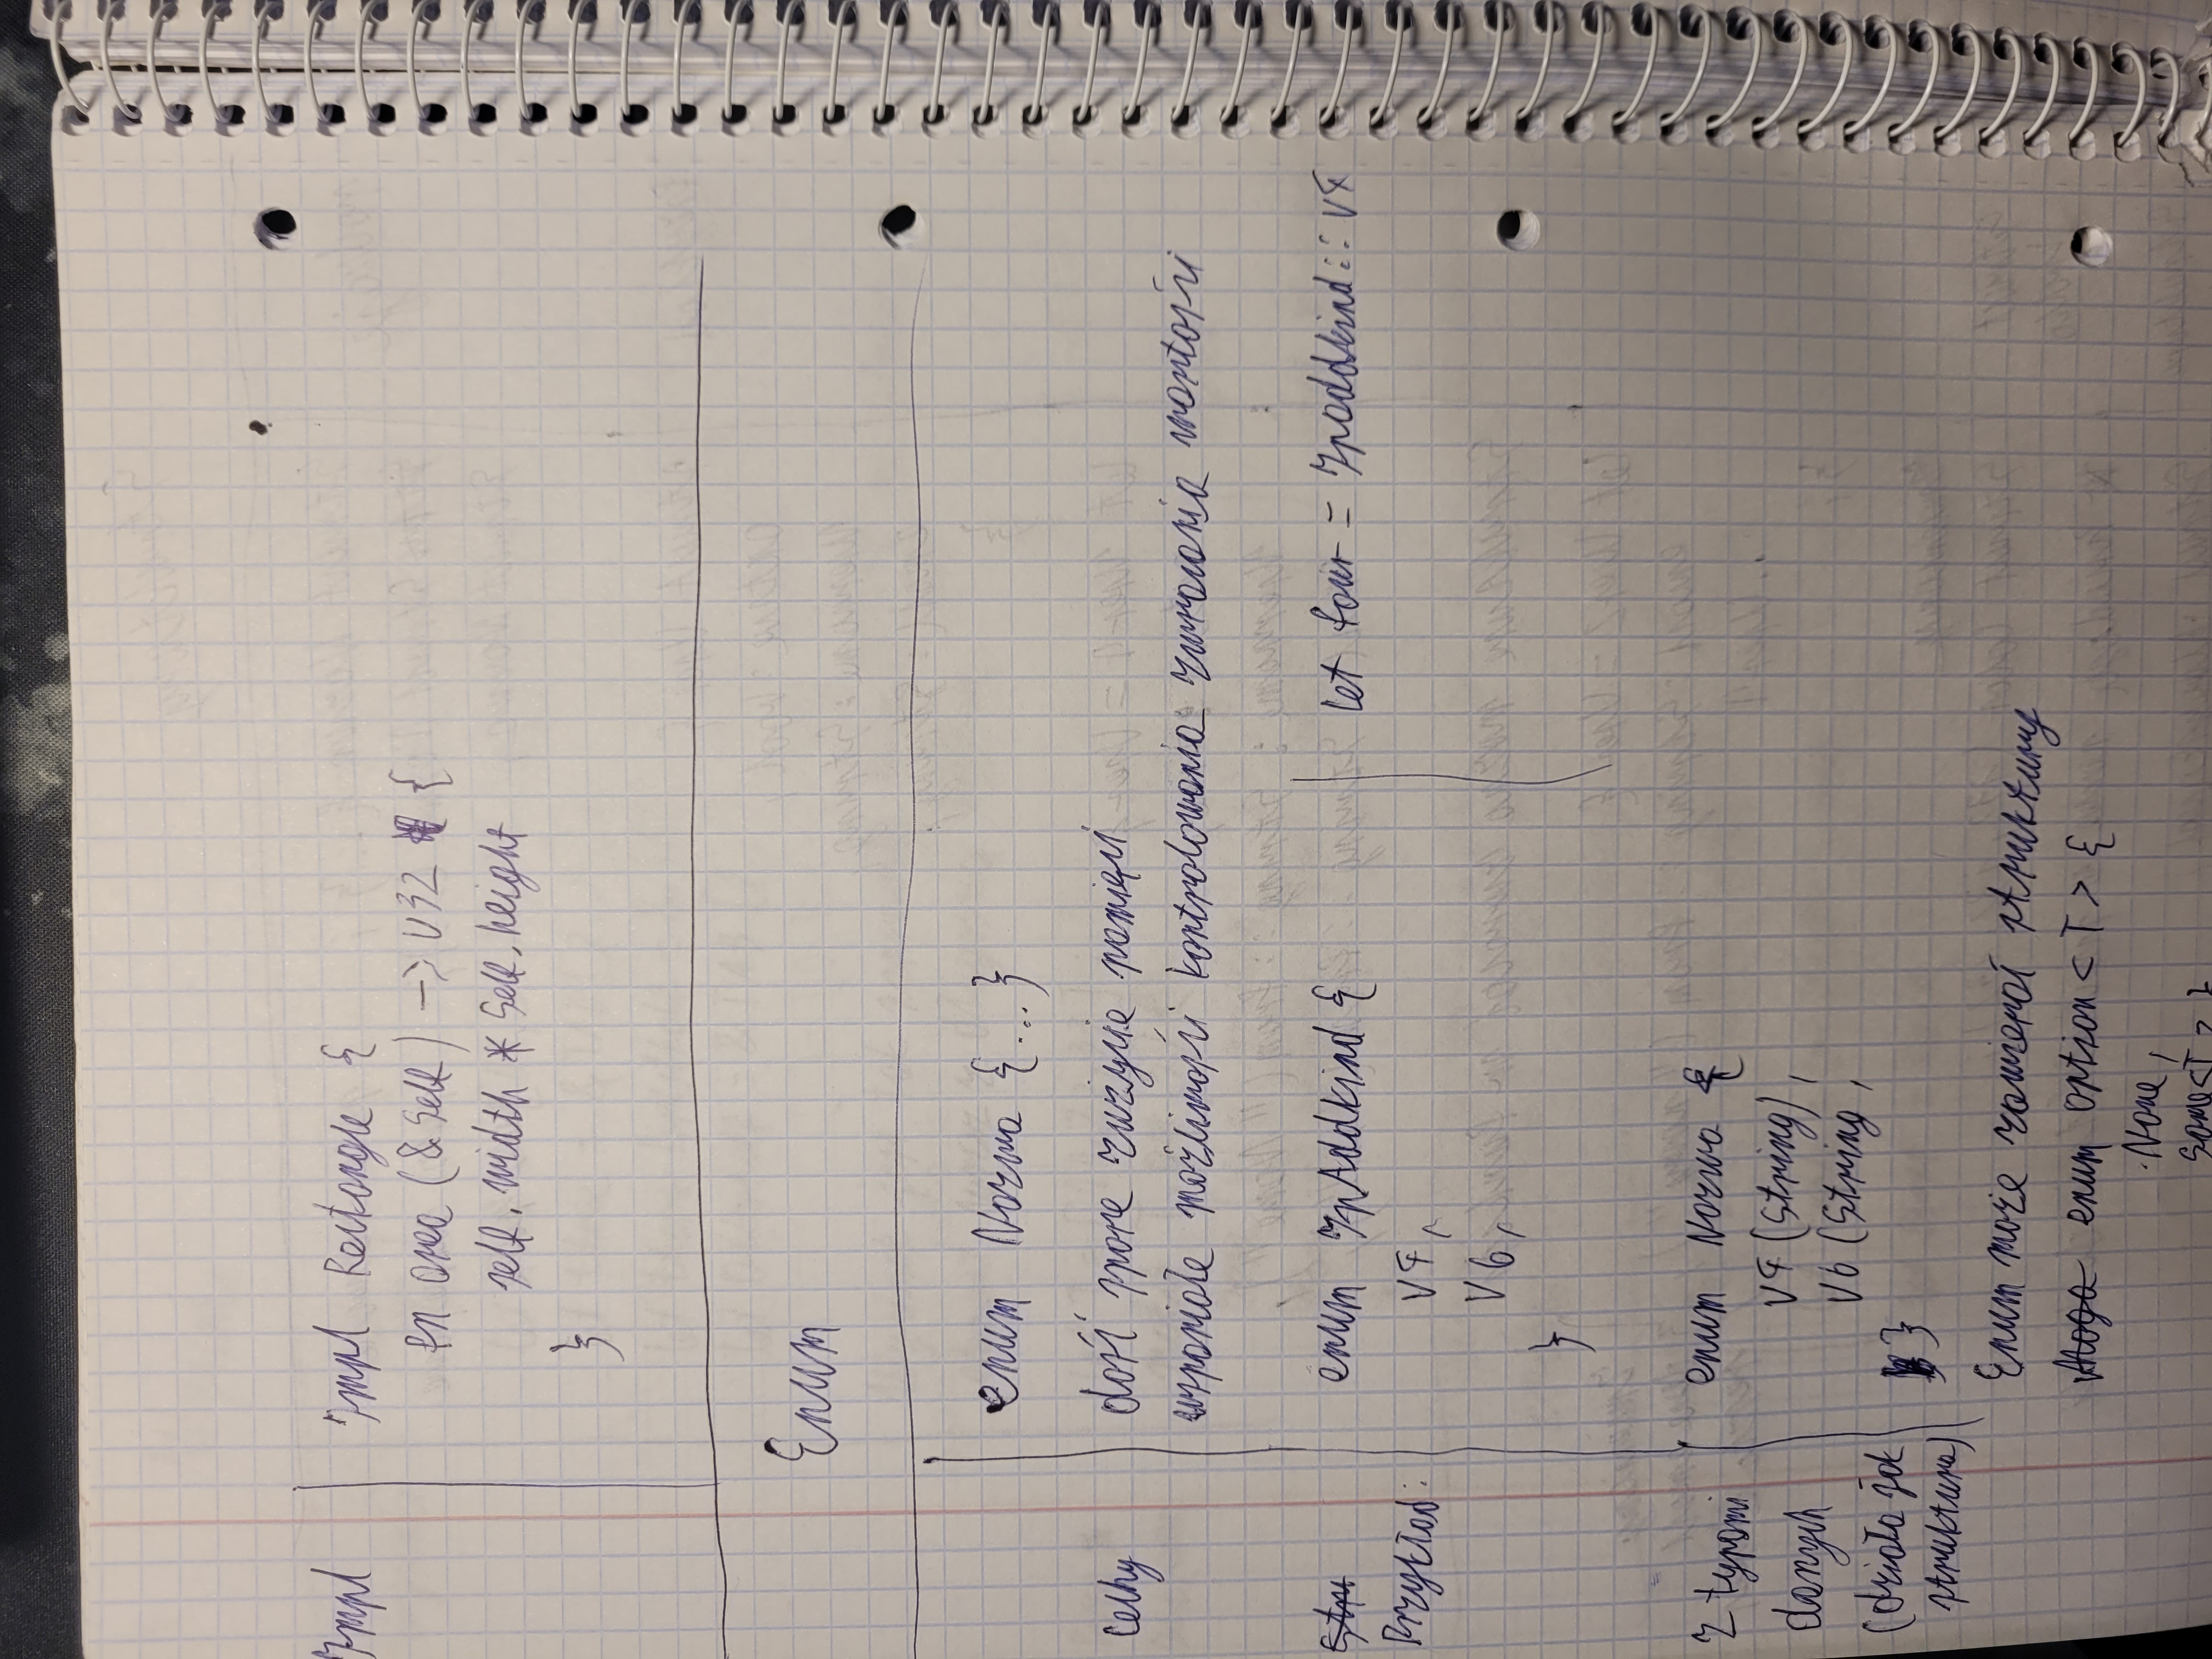 Impl
Impl Rectangle {
fn area (& Self) -> U32 {
self. width * Self. height
}
Enum
enum Nazwa {...}
Cechy
dość spore zużycie pamięci
wspaniałe możliwości kontrolowania zwracania wartości
Stru
Przykład:
enum IpAddkind {
V4,
V6,
}
let four = Ipaddkind:: V4
Z typami
danych
(działa jak
struktura)
enum Nazwa {
V4 (String),
V6 (String,
}
Enum może zawierać struktury
Moga enum Option < T > {
None,
Some<T> }